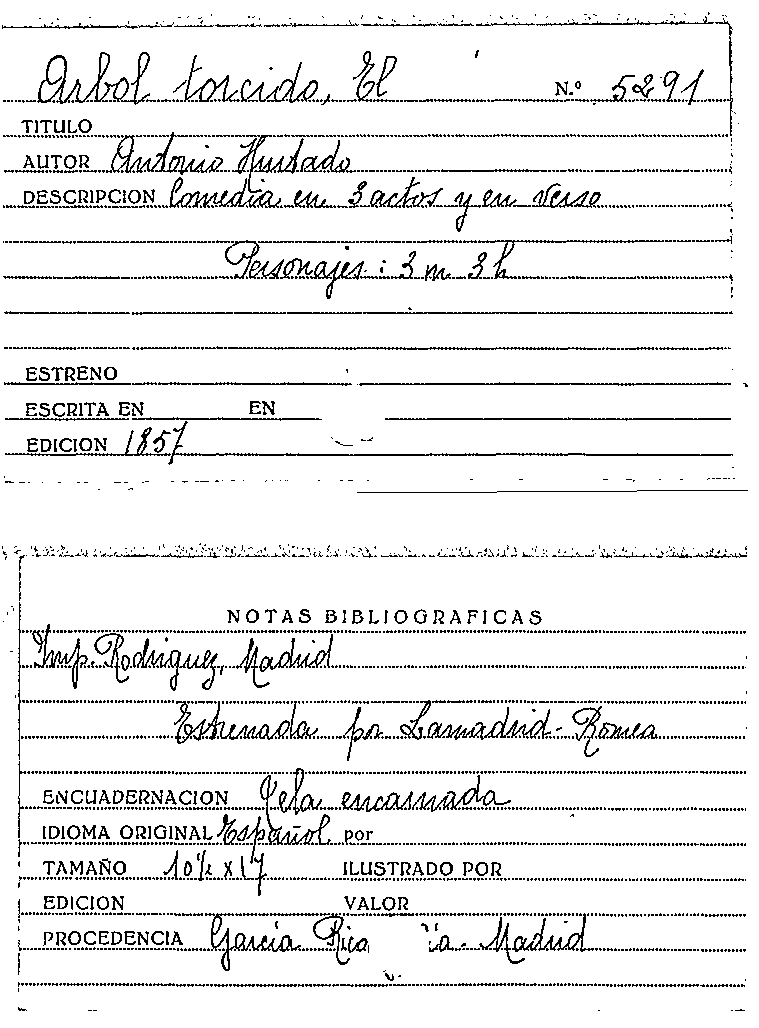 Arbol torcido, El N.º 5291
TITULO
AUTOR Antonio Hurtado
DESCRIPCION Comedia en 3 actos y en verso
Personajes: 3 m 3 h
ESTRENO
ESCRITA EN EN
EDICION 1857
NOTAS BIBLIOGRAFICAS
Imp. Rodriguez, Madrid
Estrenada por Lamadrid-Romea
ENCUADERNACION Tela encarnada
IDIOMA ORIGINAL Español por
TAMAÑO x 17 ILUSTRADO POR
EDICION VALOR
PROCEDENCIA García Rico Madrid